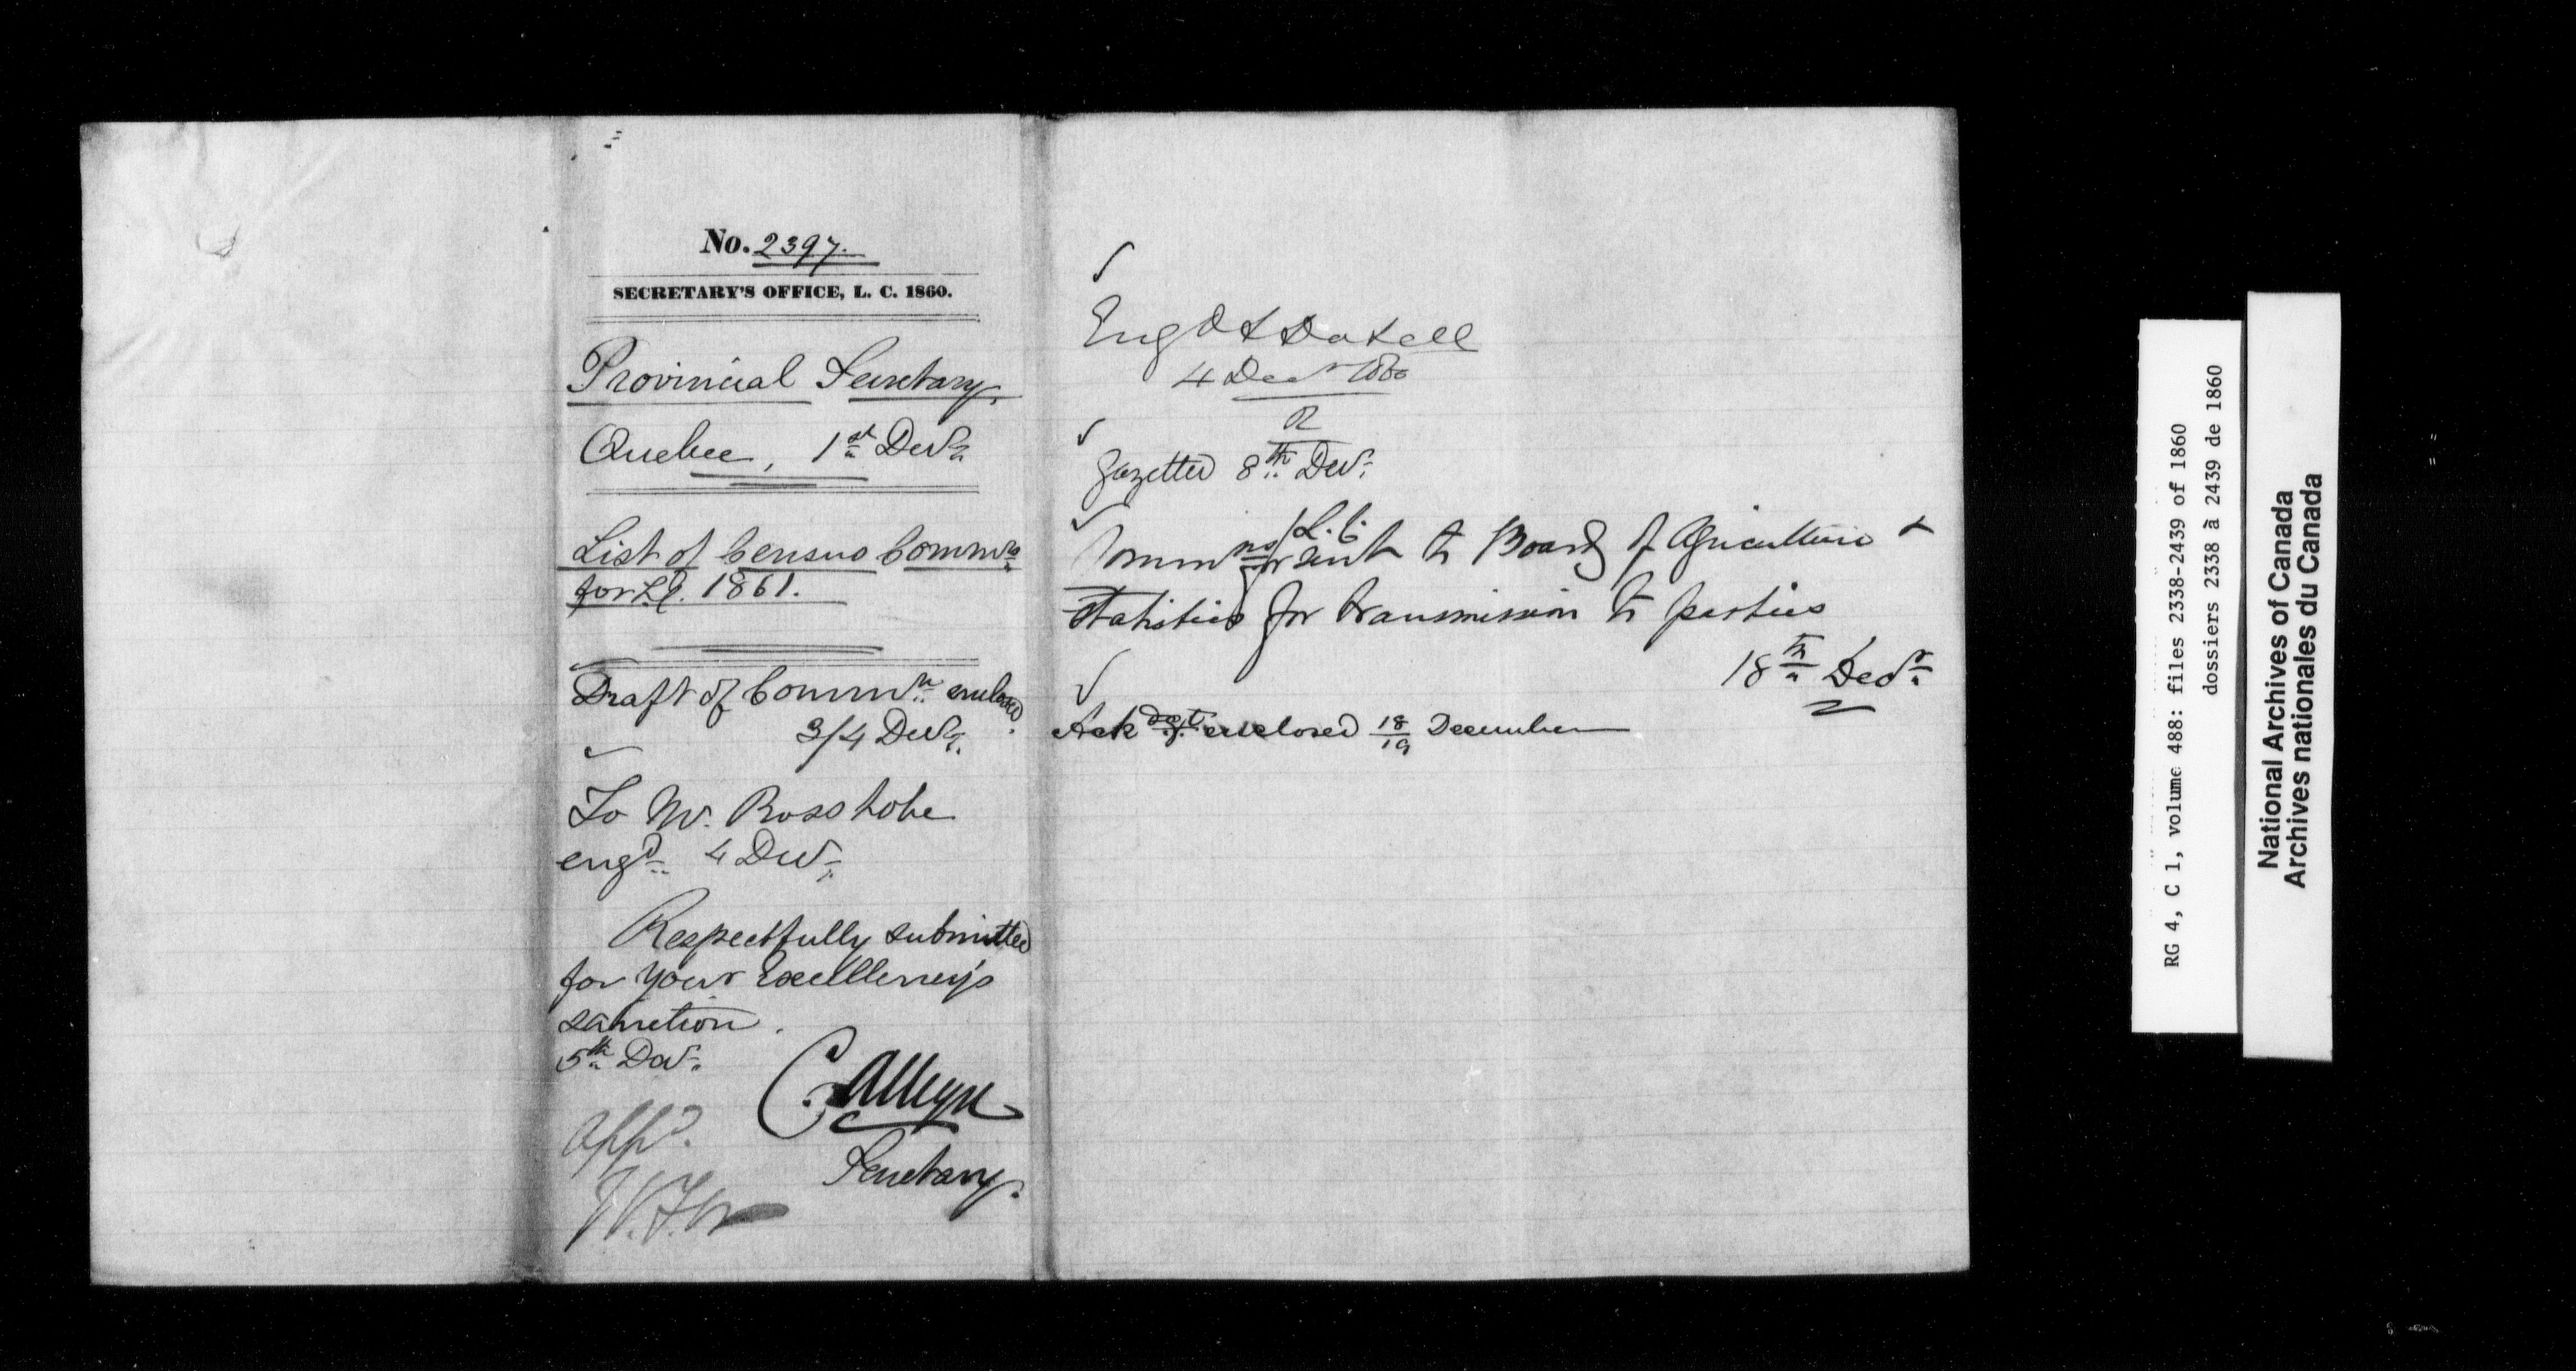 No. 2397.
SECRETARY'S OFFICE, L. C. 1860.
Provincial Secretary,
Quebec, 1st Decr.
List of Census Commrs.
for L.C. 1861.
Draft of Commn. enclosed.
3/4 Decr.
To Mr. Ross to be
engd. 4 Decr.
Respectfully submitted
for Your Excellency's
sanction.
5th Decr.
C. Alleyn
Secretary.
Appd.
Engd & Dated
4 Decr 1860
Gazetted 8th Decr.
Commns for L.C. sent to Board of Agriculture &
Statistics for transmission to parties
18th Decr.
Ack enclosed 18/19 December
RG 4, C 1, volume 488: files 2338-2439 of 1860
dossiers 2338 à 2439 de 1860
National Archives of Canada
Archives nationales du Canada